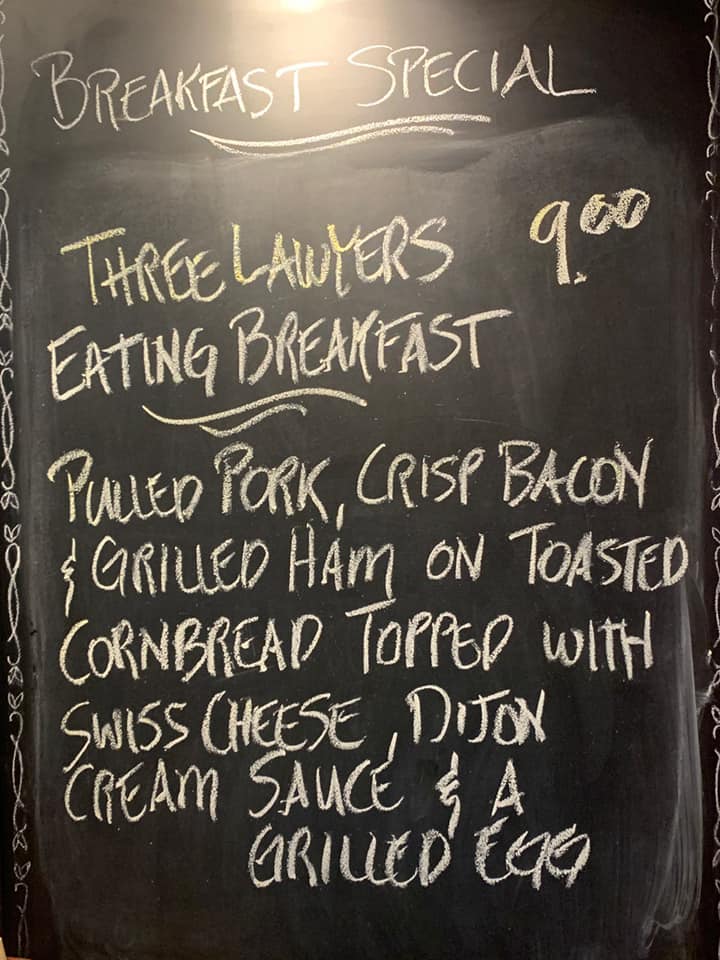 BREAKFAST SPECIAL
THREE LAWYERS 9.00
EATING BREAKFAST
PULLED PORK, CRISP BACON
& GRILLED HAM ON TOASTED
CORNBREAD TOPPED WITH
SWISS CHEESE, DIJON
CREAM SAUCE & A
GRILLED EGG